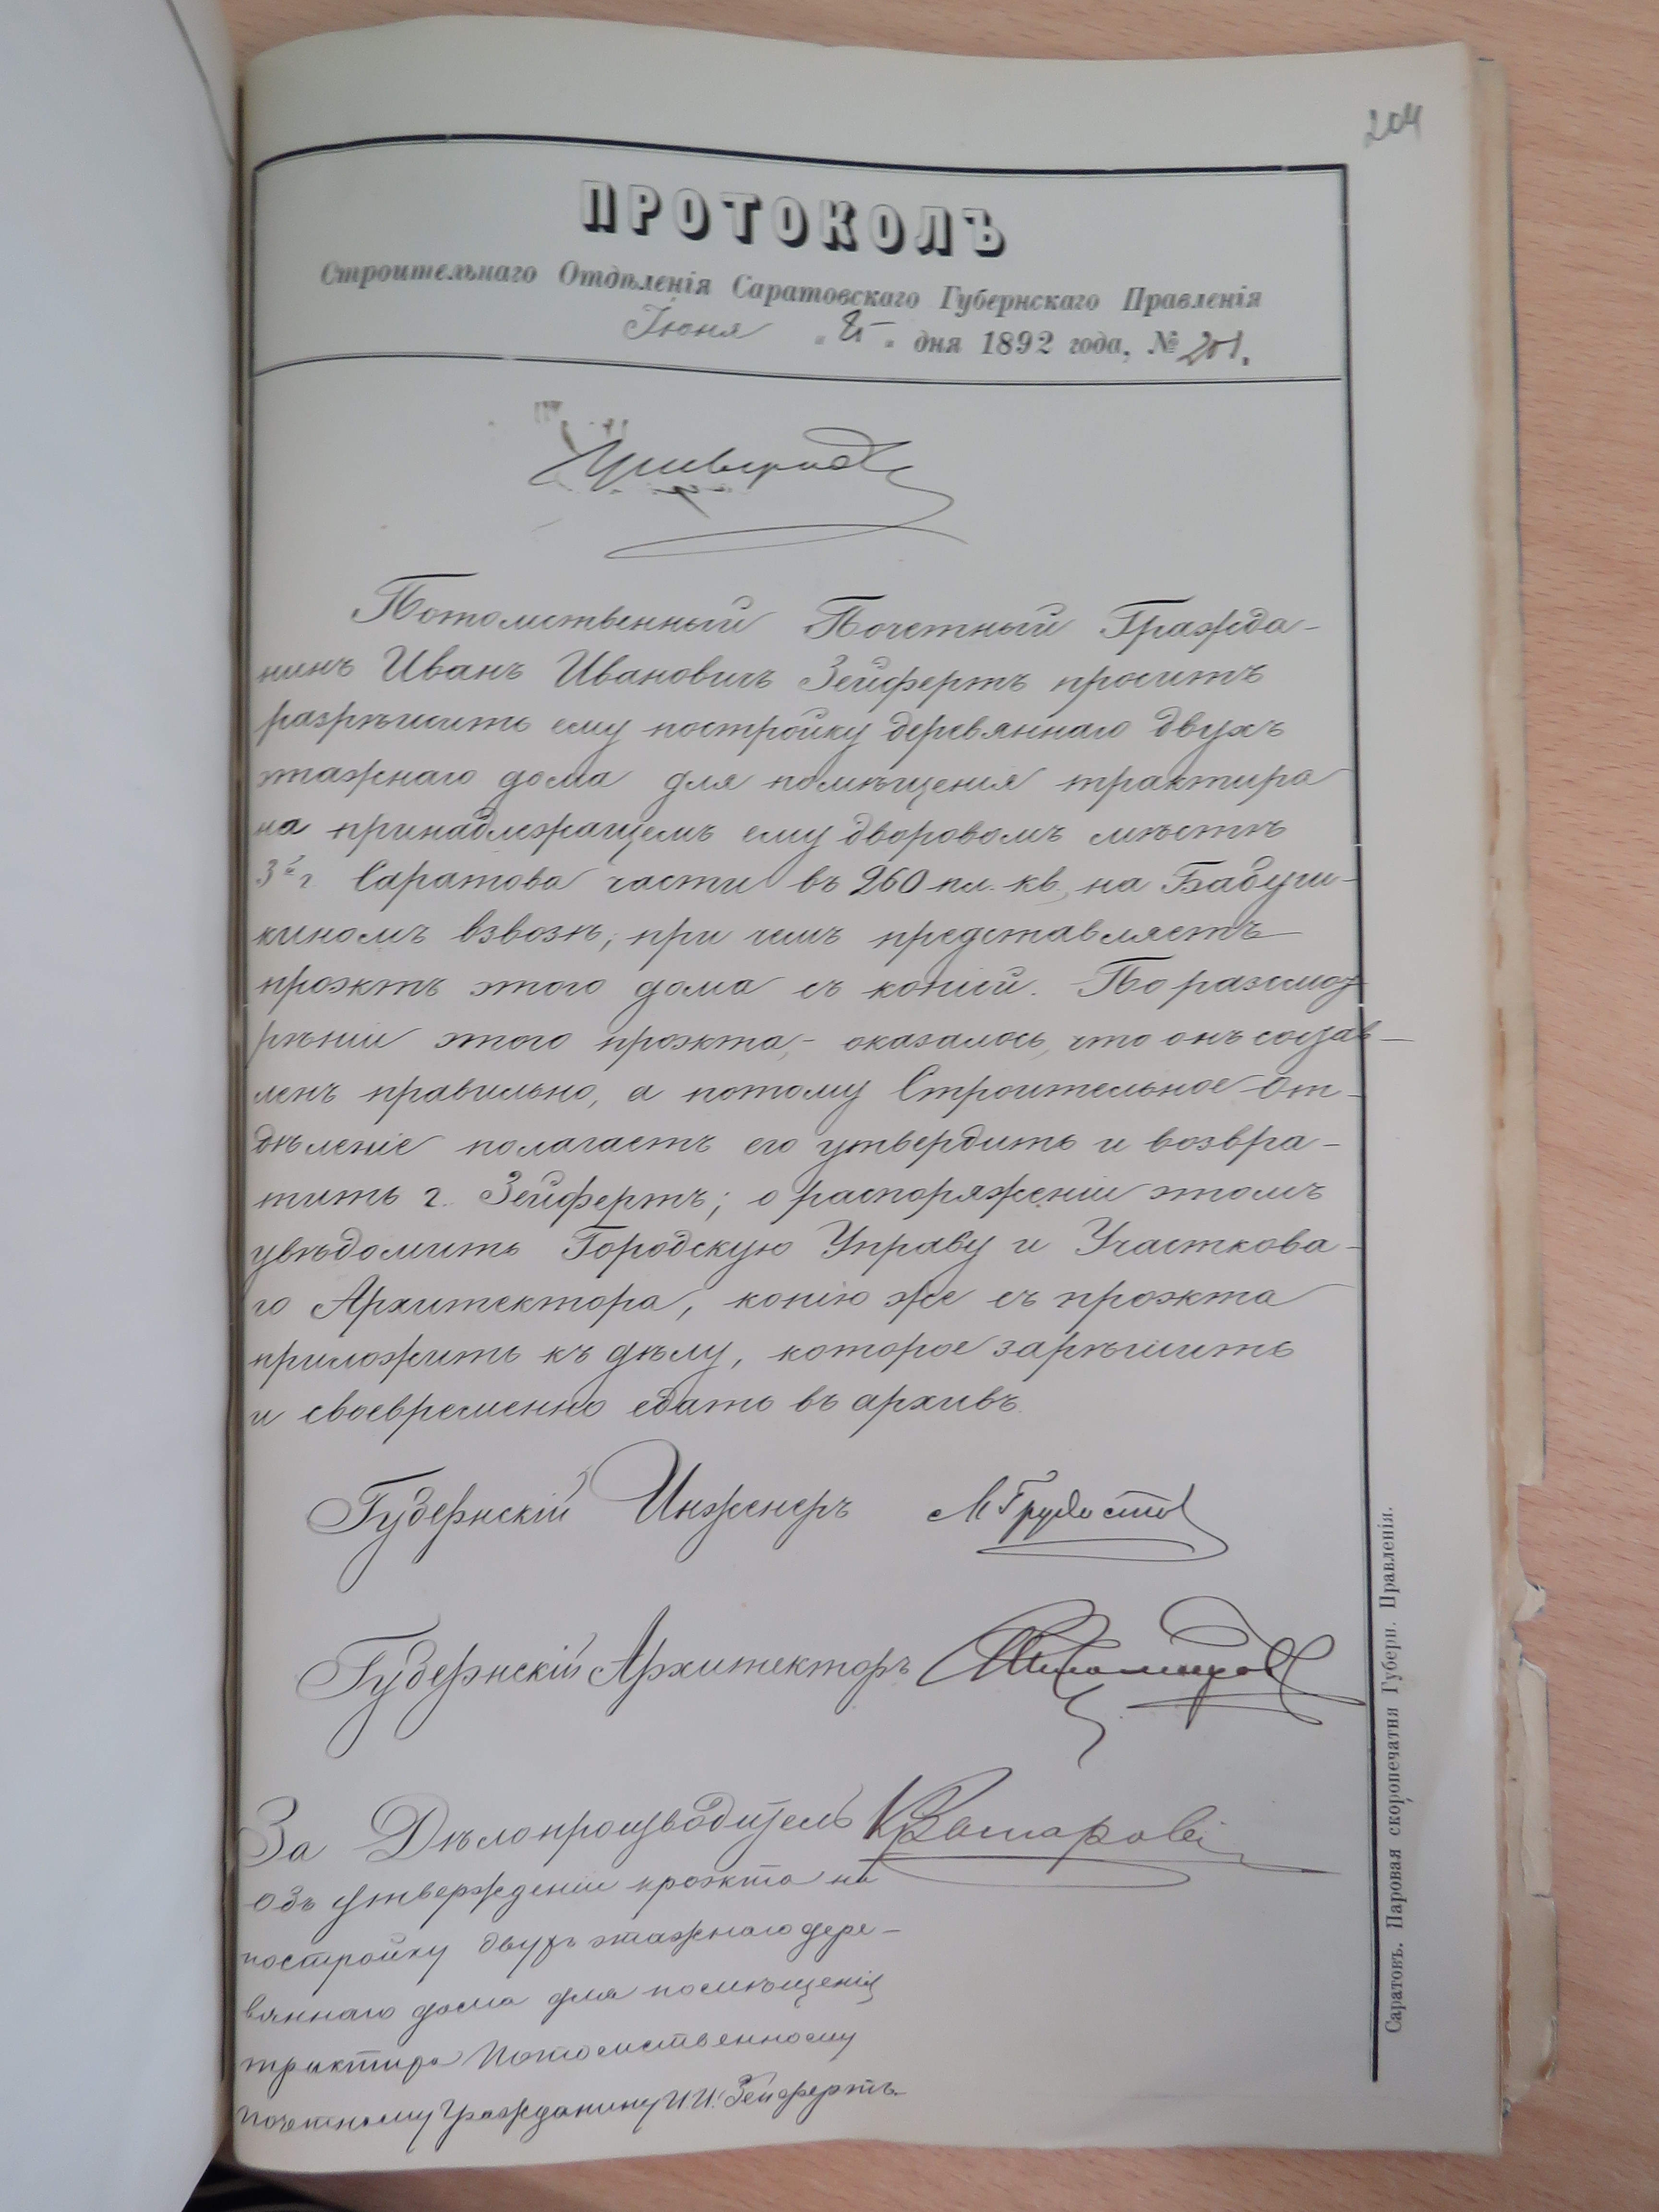 204
ПРОТОКОЛЪ
Строительнаго Отдѣленія Саратовскаго Губернскаго Правленія
Іюня „ 8 „ дня 1892 года, № 201.
Потомственный Почетный Гражда-
нинъ Иванъ Ивановичъ Зейфертъ проситъ
разрѣшить ему постройку деревяннаго двухъ
этажнаго дома для помѣщенія трактира
на принадлежащемъ ему дворовомъ мѣстѣ
3й г. Саратова части въ 260 пл. кв. на Бабуш-
киномъ взвозѣ, при чемъ представляетъ
проэктъ этого дома съ копіей. По разсмот-
рѣніи этого проэкта,- оказалось, что онъ состав-
ленъ правильно, а потому Строительное От-
дѣленіе полагаетъ его утвердить и возвра-
тить г. Зейфертъ; о распоряженіи этомъ
увѣдомить Городскую Управу и Участкова-
го Архитектора, копію же съ проэкта
приложить къ дѣлу, которое зарѣшить
и своевременно сдать въ архивъ.
Губернскій Инженеръ М Грудистов
Губернскій Архитекторъ
За Дѣлопроизводитель
Объ утвержденіи проэкта на
постройку двухъ этажнаго дере-
вяннаго дома для помѣщенія
трактира Потомственному
Почетному Гражданину И. И. Зейфертъ.
Саратовъ. Паровая скоропечатня Губерн. Правленія.